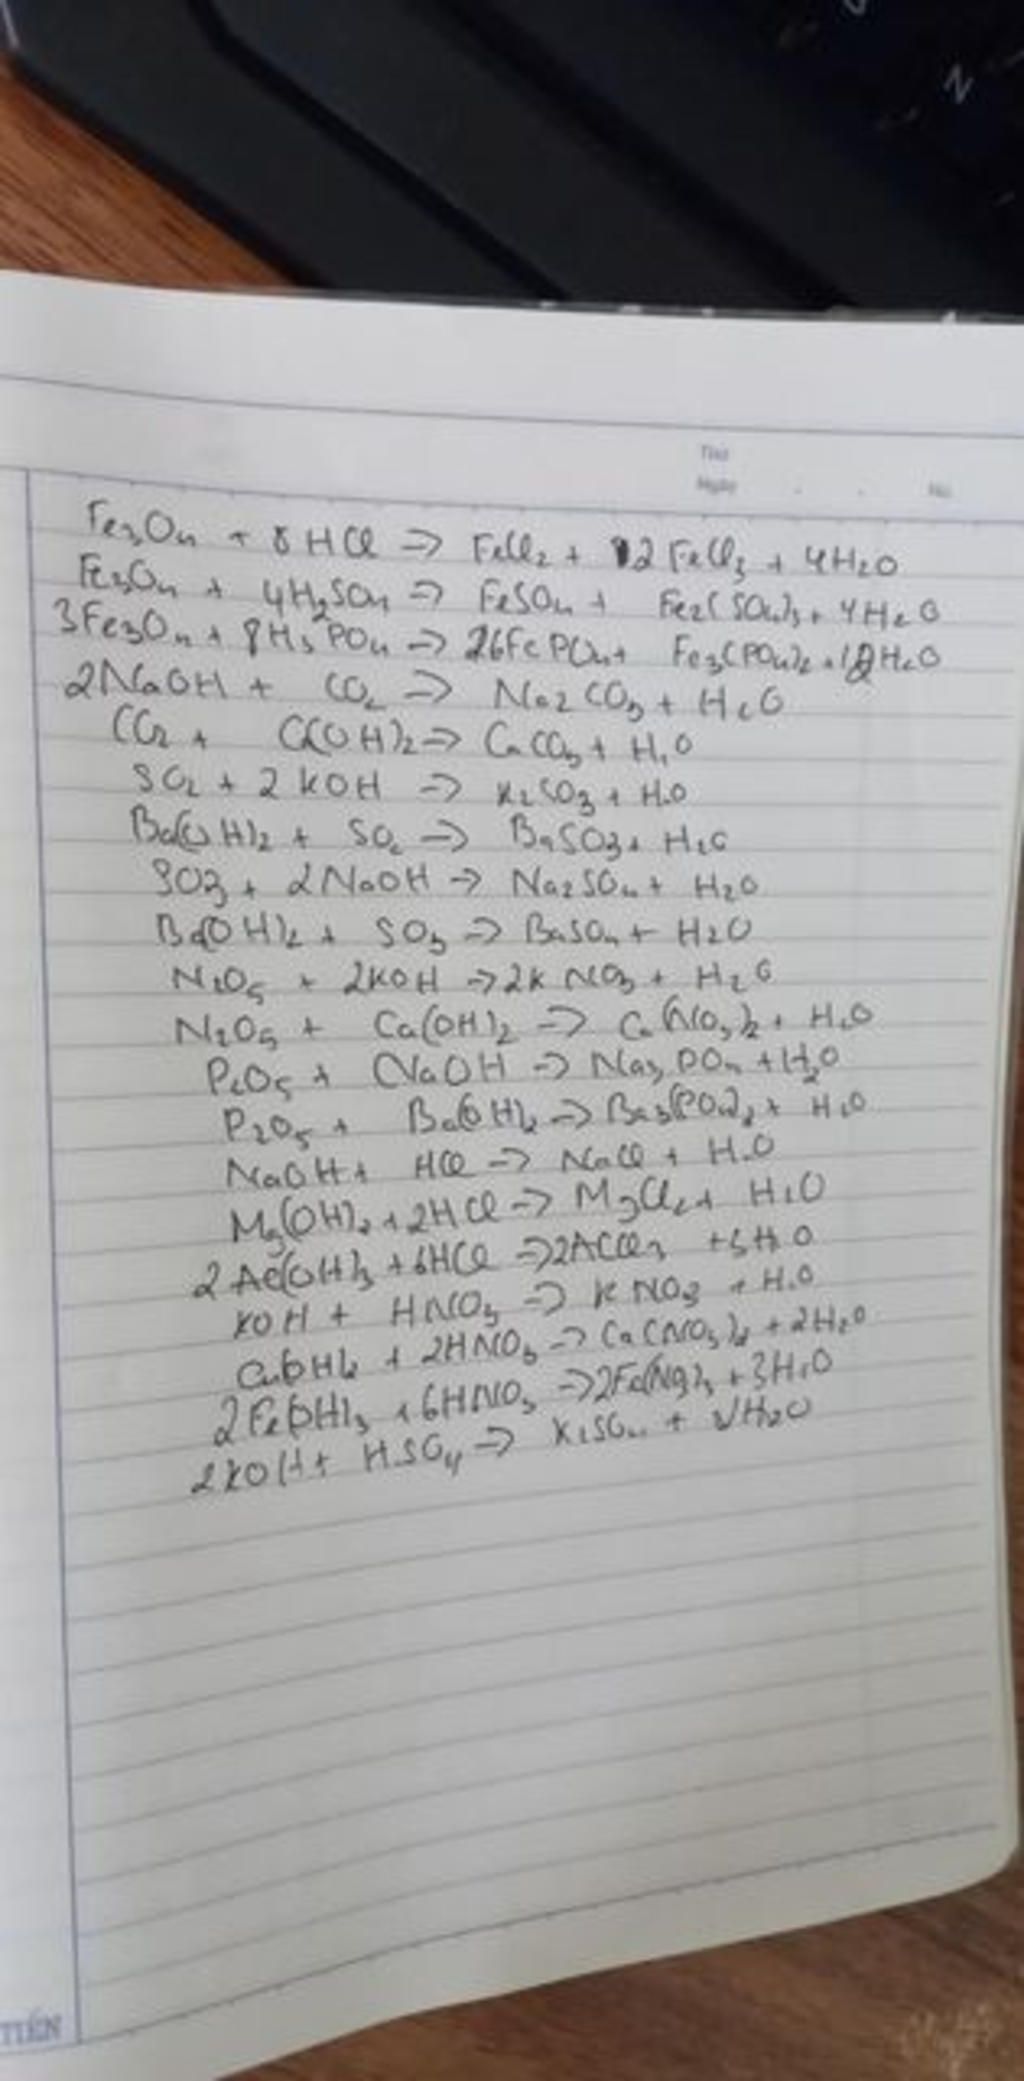 Thứ
Ngày . . No.
Fe3O4 + 8HCl => FeCl2 + 2FeCl3 + 4H2O
Fe3O4 + 4H2SO4 => FeSO4 + Fe2(SO4)3 + 4H2O
3Fe3O4 + 8H3PO4 => 6FePO4 + Fe3(PO4)2 + 12H2O
2NaOH + CO2 => Na2CO3 + H2O
CO2 + Ca(OH)2 => CaCO3 + H2O
SO2 + 2KOH -> K2SO3 + H2O
Ba(OH)2 + SO2 => BaSO3 + H2O
SO3 + 2NaOH -> Na2SO4 + H2O
Ba(OH)2 + SO3 -> BaSO4 + H2O
N2O5 + 2KOH -> 2KNO3 + H2O
N2O5 + Ca(OH)2 -> Ca(NO3)2 + H2O
P2O5 + NaOH -> Na3PO4 + H2O
P2O5 + Ba(OH)2 => Ba3(PO4)2 + H2O
NaOH + HCl -> NaCl + H2O
Mg(OH)2 + 2HCl -> MgCl2 + H2O
2Al(OH)3 + 6HCl => 2AlCl3 + H2O
KOH + HNO3 => KNO3 + H2O
+ 2HNO3 -> Ca(NO3)2 + 2H2O
2Fe(OH)3 + 6HNO3 => 2Fe(NO3)3 + 3H2O
2KOH + H2SO4 => K2SO4 + H2O
TIẾN